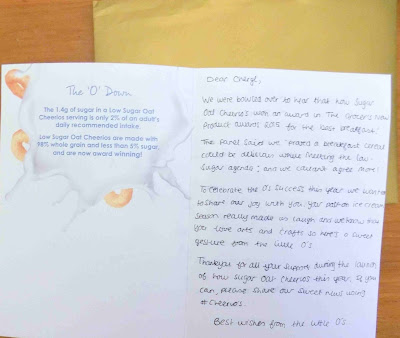 The 'O' Down
The 1.4g of sugar in a Low Sugar Oat
Cheerios serving is only 2% of an adult's
daily recommended intake.
Low Sugar Oat Cheerios are made with
98% whole grain and less than 5% sugar,
and are now award winning!
Dear Cheryl,
We were bowled over to hear that low sugar
Oat Cheerios won an award in The Grocer's New
Product awards 2015 for the best breakfast!
The panel said we 'proved a breakfast cereal
could be delicious while meeting the low-
sugar agenda', and we couldn't agree more!
To celebrate the O's success this year we wanted
to share our joy with you. Your post on ice cream
season really made us laugh and we know that
you love arts and crafts so here's a sweet
gesture from the little O's.
Thankyou for all your support during the launch
of low sugar Oat Cheerios this year. If you
can, please share our sweet news using
#Cheerios.
Best wishes from the little O's